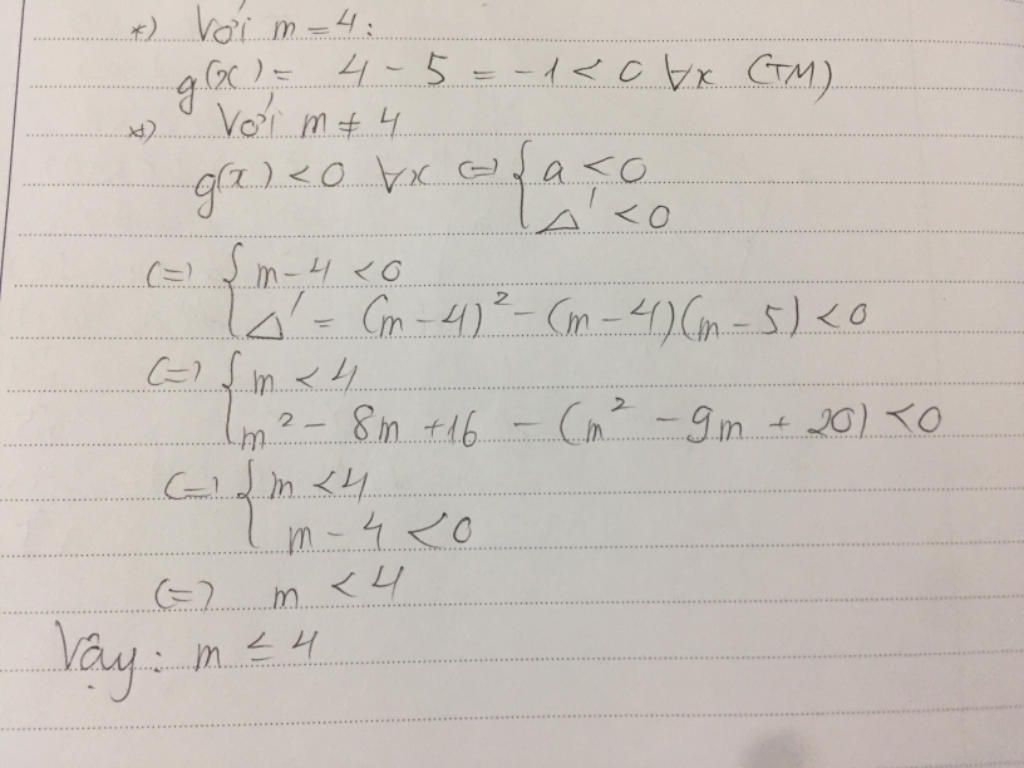 *) Với m = 4:
g(x) = 4 - 5 = -1 < 0 ∀x (TM)
*) Với m ≠ 4
g(x) < 0 ∀x (=) { a < 0
Δ' < 0
(=) { m - 4 < 0
Δ' = (m - 4)² - (m - 4)(m - 5) < 0
(=) { m < 4
m² - 8m + 16 - (m² - 9m + 20) < 0
(=) { m < 4
m - 4 < 0
(=) m < 4
Vậy: m ≤ 4